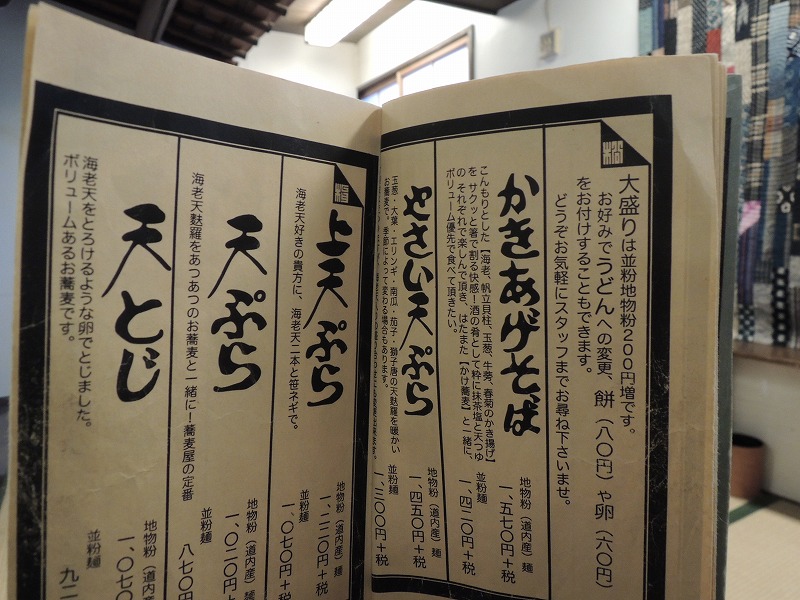 大盛りは並粉地物粉200円増です。
お好みでうどんへの変更、餅(八〇円)や卵(六〇円)
をお付けすることもできます。
どうぞお気軽にスタッフまでお尋ね下さいませ。
かきあげそば
こんもりとした【海老、帆立貝柱、玉葱、牛蒡、春菊のかき揚げ】
を サクッと箸で割る快感!酒の肴として粋に抹茶塩と天つゆ
の それぞれで楽しんで頂き、はたまた【かけ蕎麦】と一緒に、
ボリューム優先で食べて頂きたい。
地物粉(道内産)麺
一、五七〇円+税
並粉麺
一、四二〇円+税
やさい天ぷら
玉葱・大葉・エリンギ・南瓜・茄子・獅子唐の天麩羅を暖かい
お蕎麦で。季節によって変わる場合もあります。
地物粉(道内産)麺
一、四五〇円+税
並粉麺
一、三〇〇円+税
上天ぷら
海老天好きの貴方に、海老天二本と笹ネギで。
地物粉(道内産)麺
一、二二〇円+税
並粉麺
一、〇七〇円+税
天ぷら
海老天麩羅をあつあつのお蕎麦と一緒に!蕎麦屋の定番
地物粉(道内産)
一、〇二〇円+
並粉麺
八七〇円
天とじ
海老天をとろけるような卵でとじました。
ボリュームあるお蕎麦です。
地物粉(道内産)
一、〇七〇
並粉麺
九二